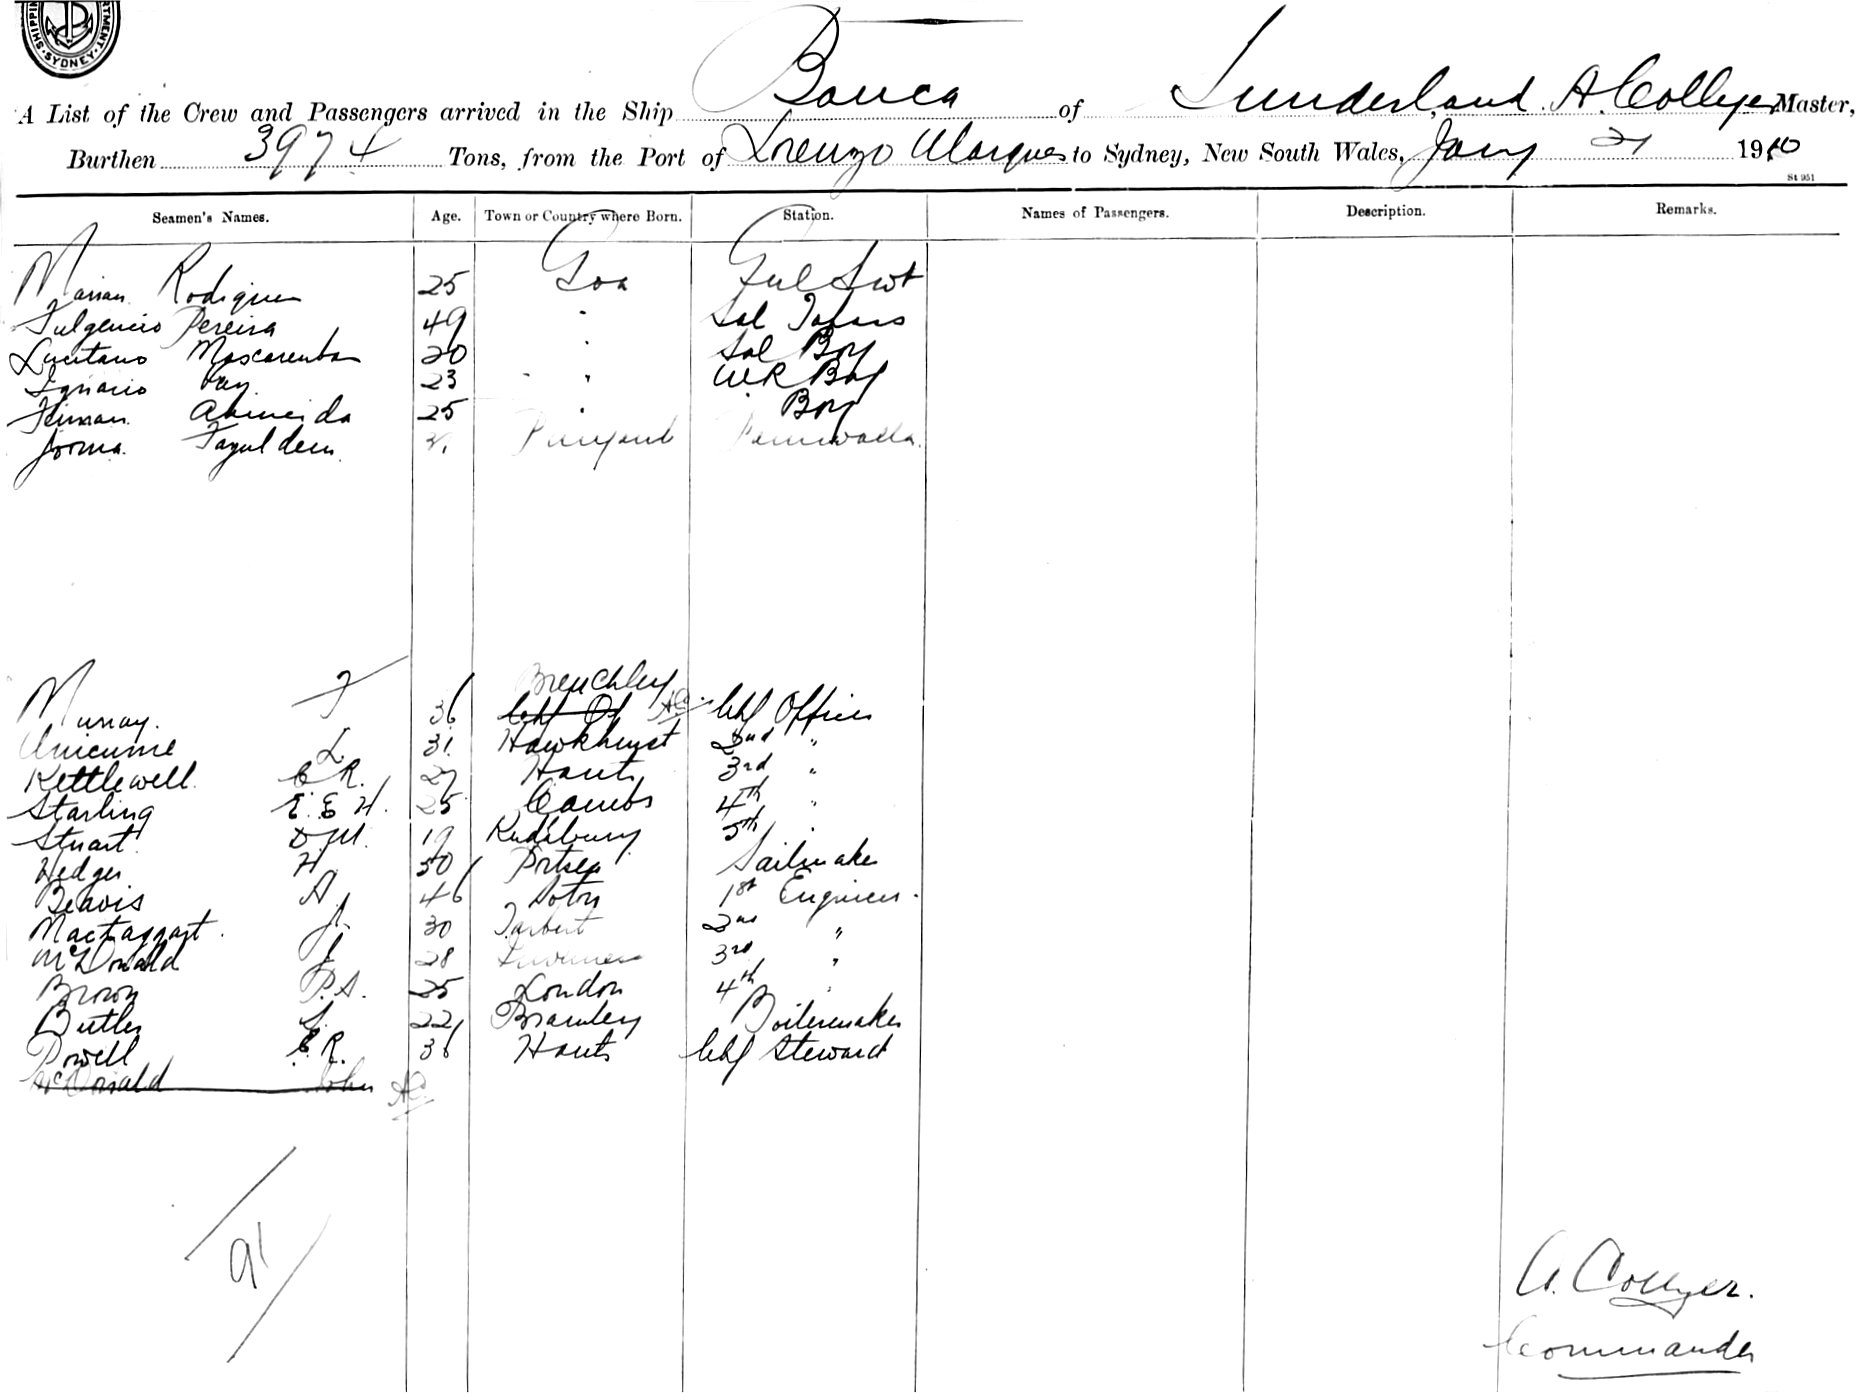 SHIPPING DEPARTMENT SYDNEY
A List of the Crew and Passengers arrived in the Ship Banca of Sunderland, A. Collyer Master,
Burthen 3974 Tons, from the Port of Lorenzo Marques to Sydney, New South Wales, Jany 21 1910
St 951
Seamen's Names. Age. Town or Country where Born. Station. Names of Passengers. Description. Remarks.
Rodigues 25 Goa Swt
Fulgencio Pereira 49 " Sal
Mascarenhas 20 " Sal Boy
Ignacio Vaz 23 " WR Boy
Almeida 25 " Boy
Jooma
Murray. F 36 Brenchley Chf Officer
Chf Of AC
L. 31 Hawkhurst 2nd "
Kettlewell C R. 27 Hants 3rd "
Starling E. E H. 25 Cambs 4th "
Stuart D. M. 19 5th "
Hedges H. 50 Portsea Sailmaker
Beavis A. 46 Soton 1st Engineer.
Mactaggart. J. 30 Tarbert 2nd "
McDonald J 28 Inverness 3rd "
Brown P. S. 25 London 4th "
Butler 22 Bramley Boilermaker
Powell C. R. 36 Hants Chf Steward
McDonald John AC
91
A. Collyer.
Commander